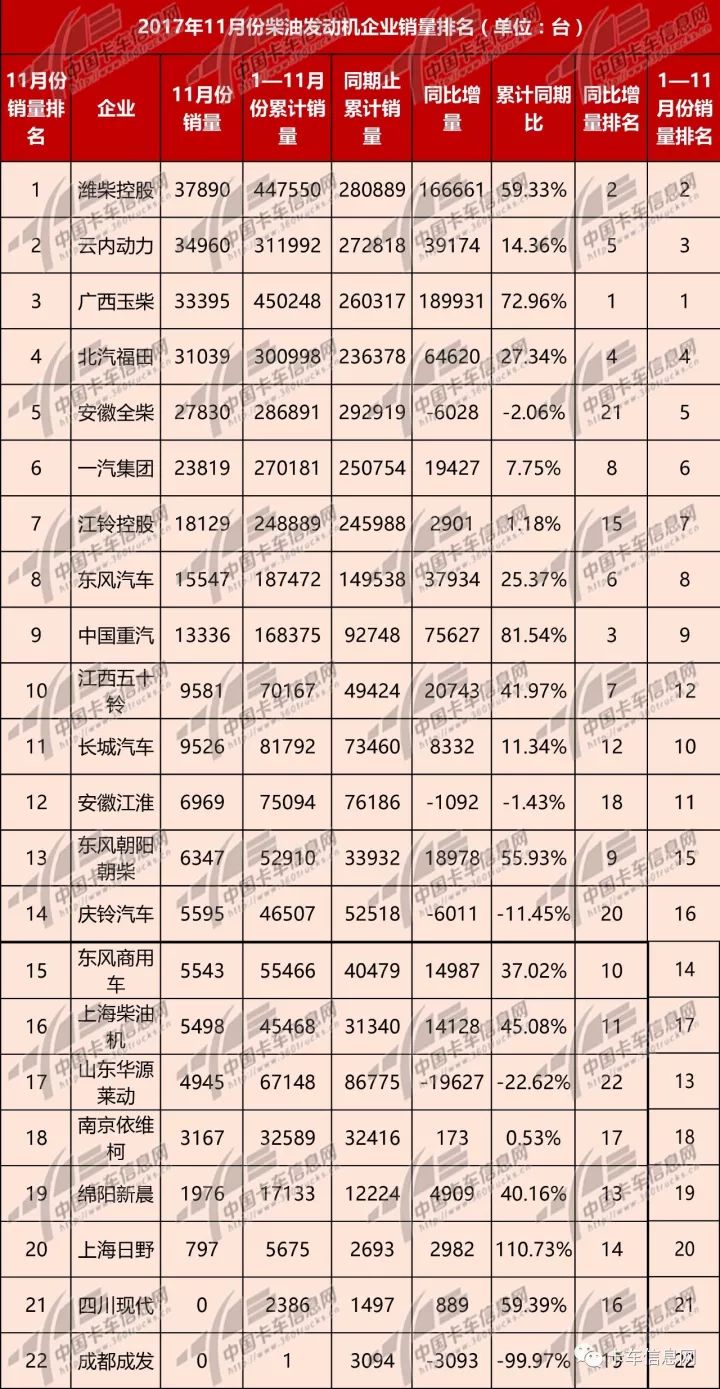 2017年11月份柴油发动机企业销量排名（单位：台）
11月份销量排名 企业 11月份销量 1—11月份累计销量 同期止累计销量 同比增量 累计同期比 同比增量排名 1—11月份销量排名
1 潍柴控股 37890 447550 280889 166661 59.33% 2 2
2 云内动力 34960 311992 272818 39174 14.36% 5 3
3 广西玉柴 33395 450248 260317 189931 72.96% 1 1
4 北汽福田 31039 300998 236378 64620 27.34% 4 4
5 安徽全柴 27830 286891 292919 -6028 -2.06% 21 5
6 一汽集团 23819 270181 250754 19427 7.75% 8 6
7 江铃控股 18129 248889 245988 2901 1.18% 15 7
8 东风汽车 15547 187472 149538 37934 25.37% 6 8
9 中国重汽 13336 168375 92748 75627 81.54% 3 9
10 江西五十铃 9581 70167 49424 20743 41.97% 7 12
11 长城汽车 9526 81792 73460 8332 11.34% 12 10
12 安徽江淮 6969 75094 76186 -1092 -1.43% 18 11
13 东风朝阳朝柴 6347 52910 33932 18978 55.93% 9 15
14 庆铃汽车 5595 46507 52518 -6011 -11.45% 20 16
15 东风商用车 5543 55466 40479 14987 37.02% 10 14
16 上海柴油机 5498 45468 31340 14128 45.08% 11 17
17 山东华源莱动 4945 67148 86775 -19627 -22.62% 22 13
18 南京依维柯 3167 32589 32416 173 0.53% 17 18
19 绵阳新晨 1976 17133 12224 4909 40.16% 13 19
20 上海日野 797 5675 2693 2982 110.73% 14 20
21 四川现代 0 2386 1497 889 59.39% 16 21
22 成都成发 0 1 3094 -3093 -99.97% 19 22
中国卡车信息网
卡车信息网